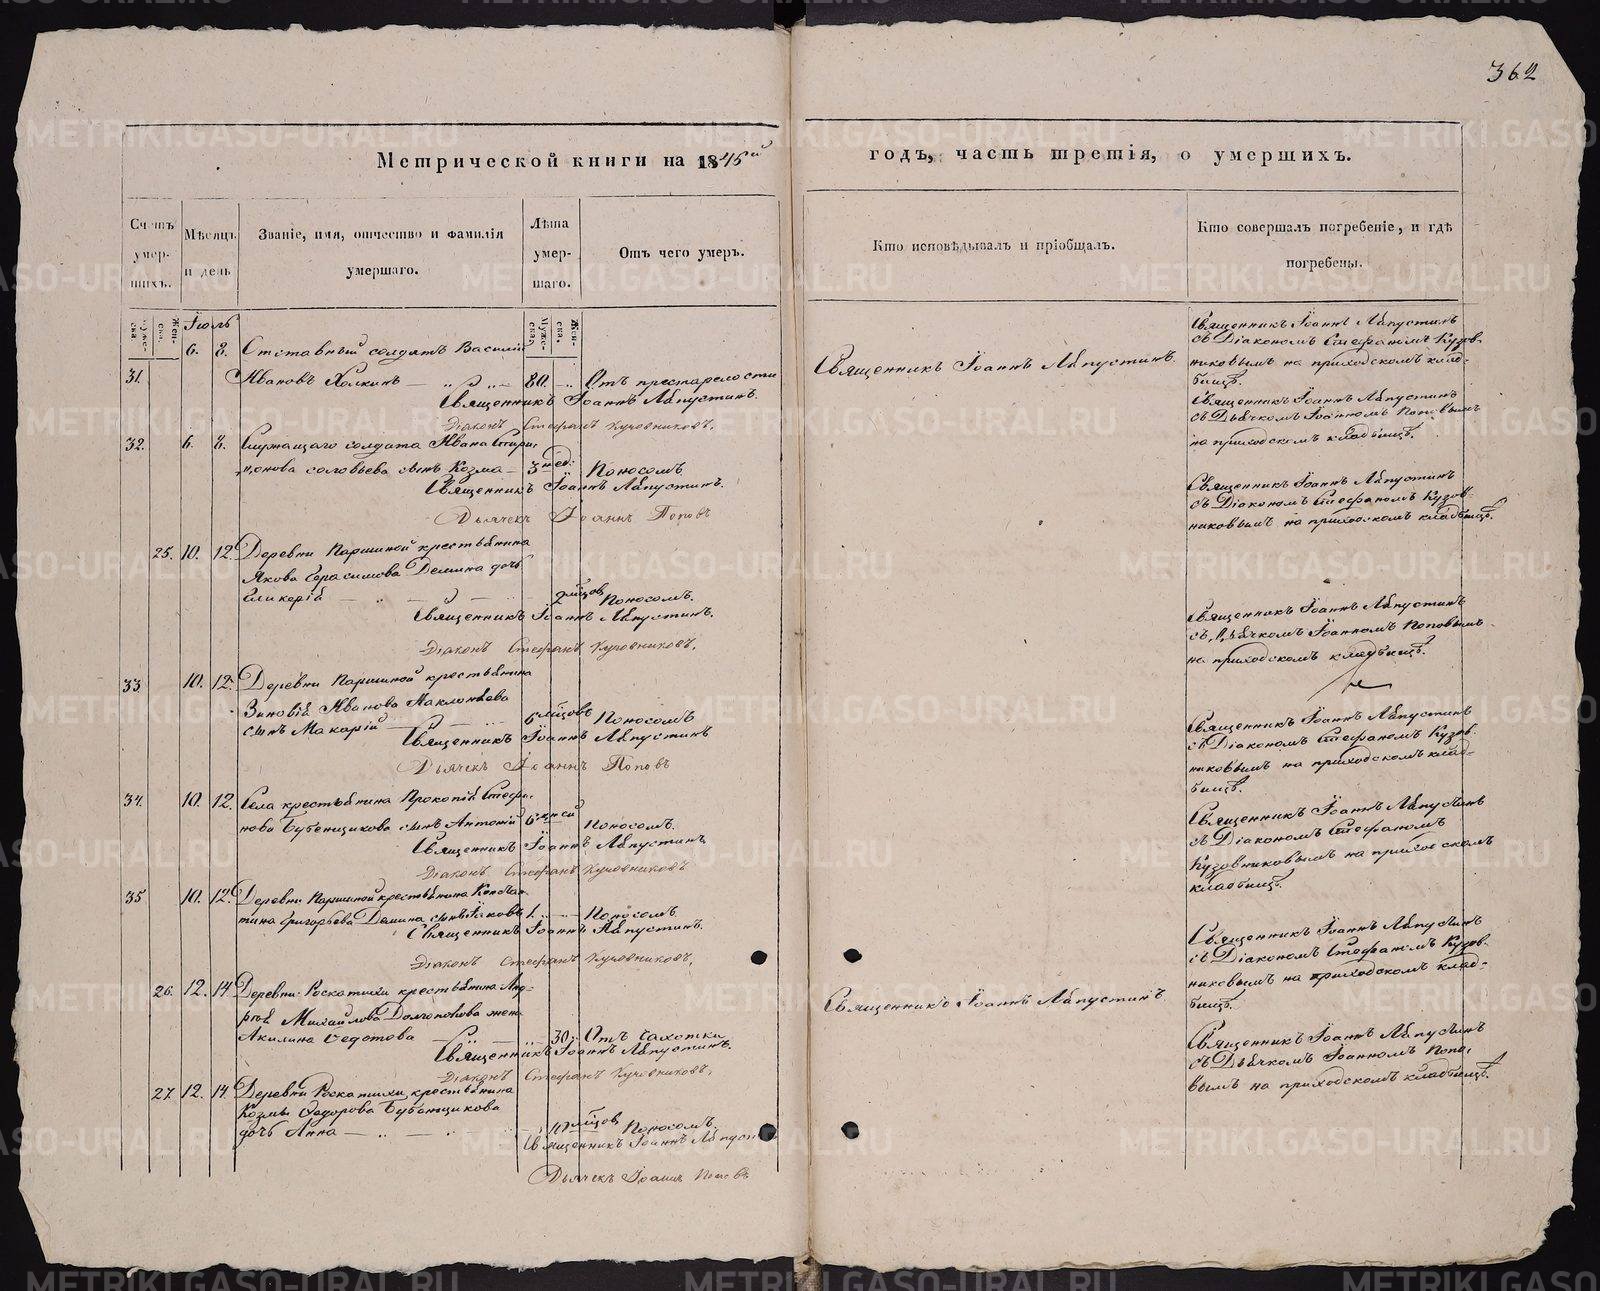 362
Метрической книги на 1845й
годъ, часть третія, о умершихъ.
Счетъ умер-шихъ.
Мѣсяцъ и день
Званіе, имя, отчество и фамилія умершаго.
Лѣта умер-шаго.
Отъ чего умеръ.
Кто исповѣдывалъ и пріобщалъ.
Кто совершалъ погребеніе, и гдѣ погребены.
Муже-ска
Жен-ска.
Муже-ска,
Жен-ска,
Іюль
6. 8. Отставный солдатъ Василій
31. Ивановъ Холкинъ — „ „ — 80. — Отъ престарелости
Священникъ Іоаннъ Ляпустинъ.
Діаконъ Стефанъ Кузовниковъ.
Священникъ Іоаннъ Ляпустинъ.
Священникъ Іоаннъ Ляпустинъ
съ Діакономъ Стефаномъ Кузов-
никовымъ на приходскомъ клад-
бищѣ.
32. 6. 8. Служащаго солдата Ивана Спири-
донова Соловьева сынъ Козма — 3 нед: Поносомъ
Священникъ Іоаннъ Ляпустинъ.
Дьячекъ Іоаннъ Поповъ
Священникъ Іоаннъ Ляпустинъ
съ Дьячкомъ Іоанномъ Поповымъ
на приходскомъ кладбищѣ.
25. 10. 12. Деревни Паршиной крестьянина
Якова Герасимова Демина дочь
Гликерія — „ — „ — 2 мѣсцов Поносомъ.
Священникъ Іоаннъ Ляпустинъ.
Діаконъ Стефанъ Кузовниковъ.
Священникъ Іоаннъ Ляпустинъ
съ Діакономъ Стефаномъ Кузов-
никовымъ на приходскомъ кладбищѣ.
33 10. 12. Деревни Паршиной крестьянина
Зиновія Иванова
сынъ Макарій — 6 мѣсцовъ Поносомъ
Священникъ Іоаннъ Ляпустинъ
Дьячекъ Іоаннъ Поповъ
Священникъ Іоаннъ Ляпустинъ
съ Дьячкомъ Іоанномъ Поповымъ
на приходскомъ кладбищѣ.
34. 10. 12. Села крестьянина Прокопія Стефа-
нова Бубенщикова сынъ Антоній 6 дней Поносомъ.
Священникъ Іоаннъ Ляпустинъ
Діаконъ Стефанъ Кузовниковъ
Священникъ Іоаннъ Ляпустинъ
съ Діакономъ Стефаномъ Кузов-
никовымъ на приходскомъ клад-
бищѣ.
35 10. 12. Деревни Паршиной крестьянина Констан-
тина Григорьева Демина сынъ Іаковъ 1. — Поносомъ.
Священникъ Іоаннъ Ляпустинъ.
Діаконъ Стефанъ Кузовниковъ.
Священникъ Іоаннъ Ляпустинъ
съ Діакономъ Стефаномъ
Кузовниковымъ на приходскомъ
кладбищѣ.
26. 12. 14. Деревни Роскатихи крестьянина Анд-
рѣя Михайлова Долгополова жена
Акилина Федотова — „ — 30. Отъ Чахотки
Священникъ Іоаннъ Ляпустинъ.
Діаконъ Стефанъ Кузовниковъ.
Священникъ Іоаннъ Ляпустинъ.
Священникъ Іоаннъ Ляпустинъ
съ Діакономъ Стефаномъ Кузов-
никовымъ на приходскомъ клад-
бищѣ.
27. 12. 14. Деревни Роскатихи крестьянина
Козмы Федорова Бубенщикова
дочь Анна — „ — „ 10 мѣсцов Поносомъ.
Священникъ Іоаннъ Ляпустинъ
Дьячекъ Іоаннъ Поповъ
Священникъ Іоаннъ Ляпустинъ
съ Дьячкомъ Іоанномъ Попо-
вымъ на приходскомъ кладбищѣ.
METRIKI.GASO-URAL.RU